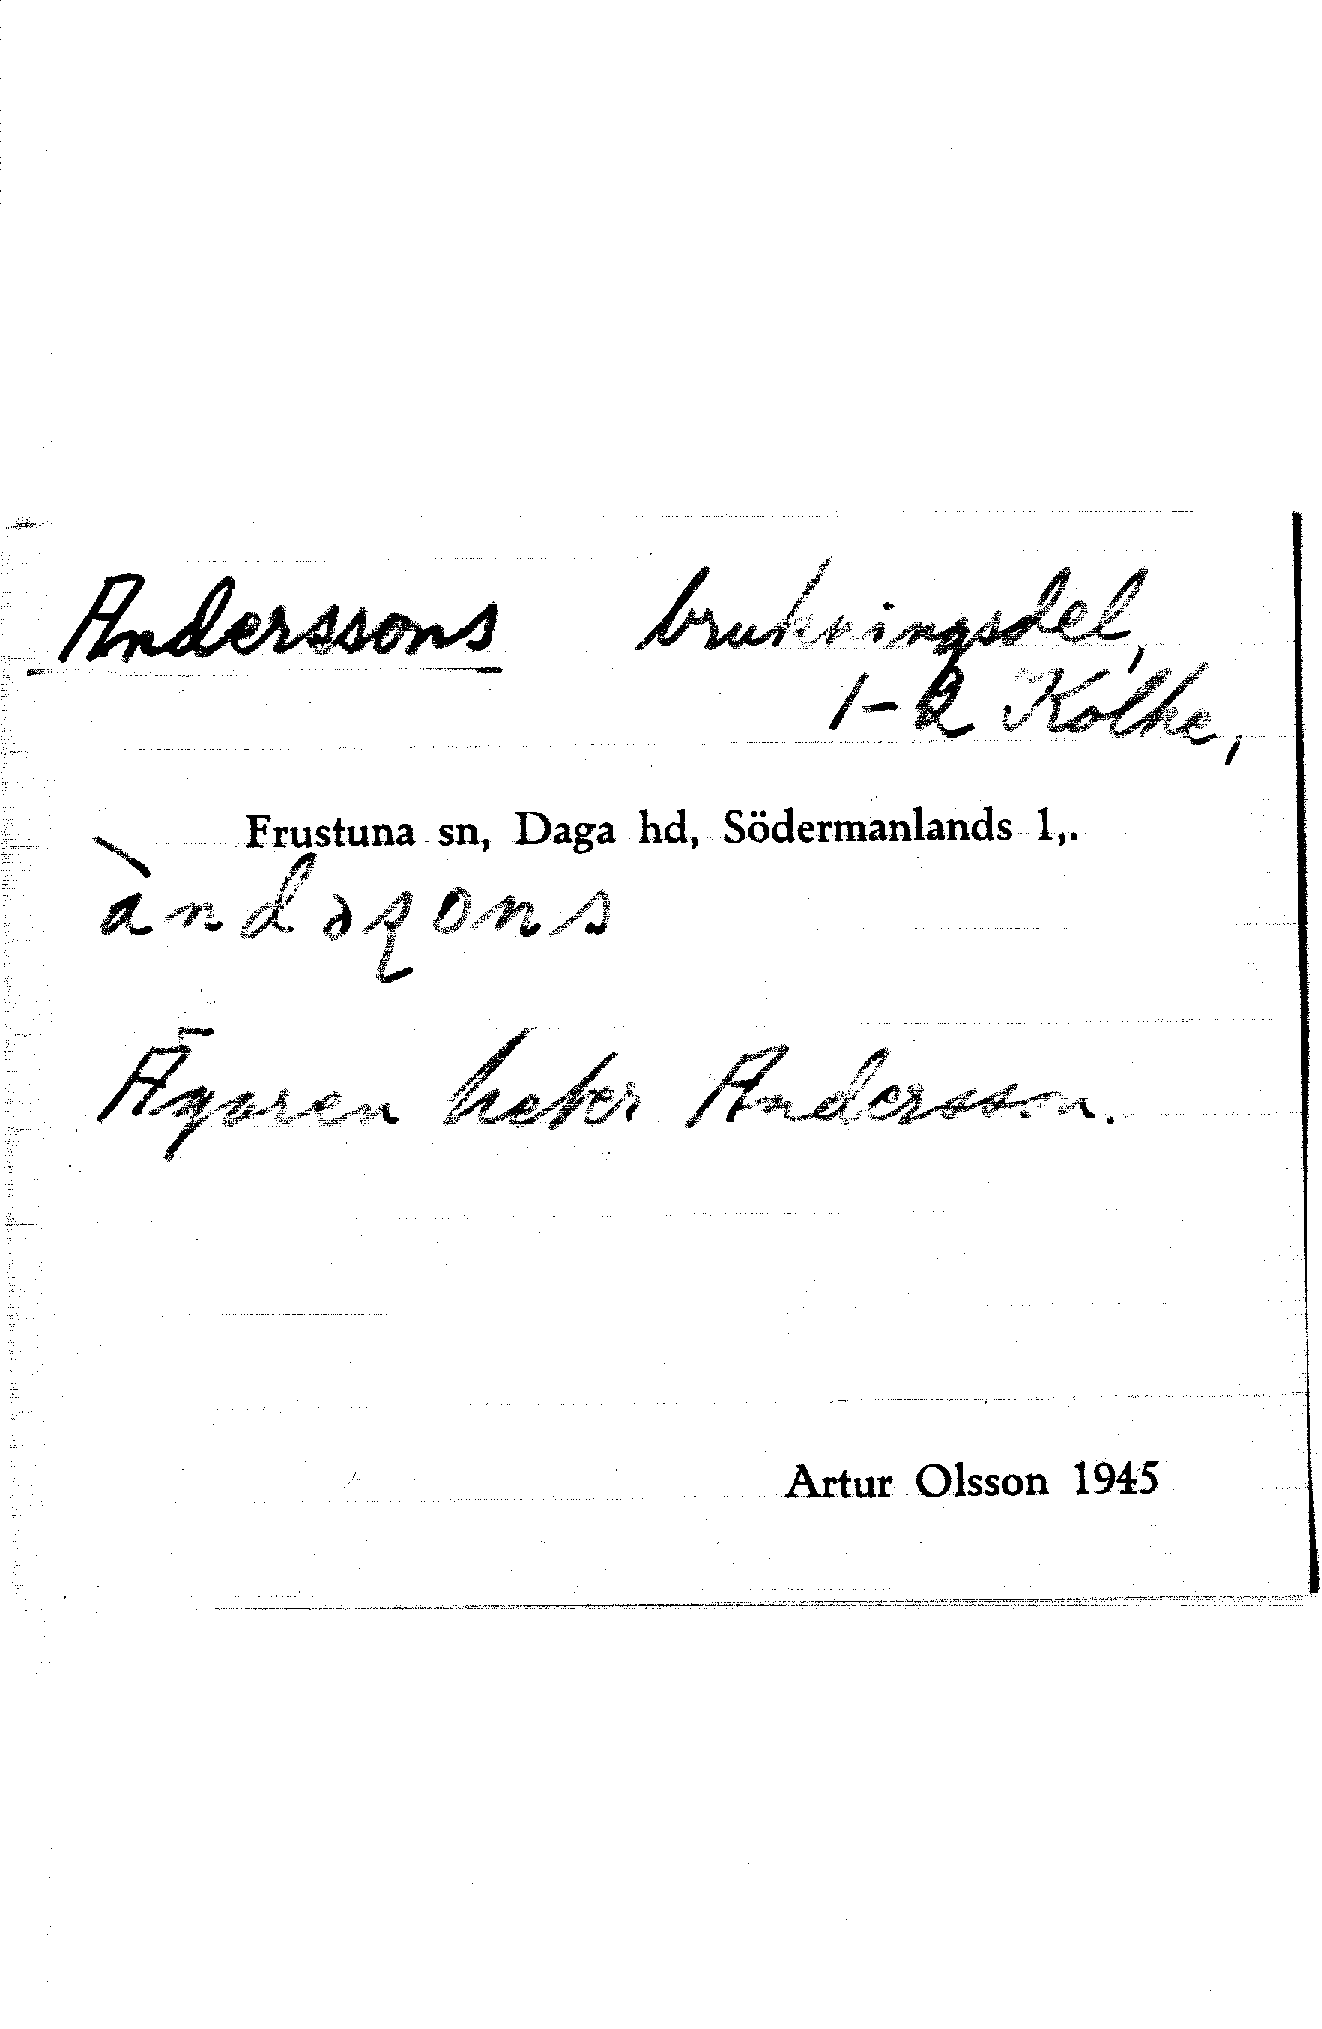 Anderssons brukningsdel,
1-2 Kolke,
Frustuna sn, Daga hd, Södermanlands l,.
àndəʀons
Ägaren heter Andersson.
Artur Olsson 1945